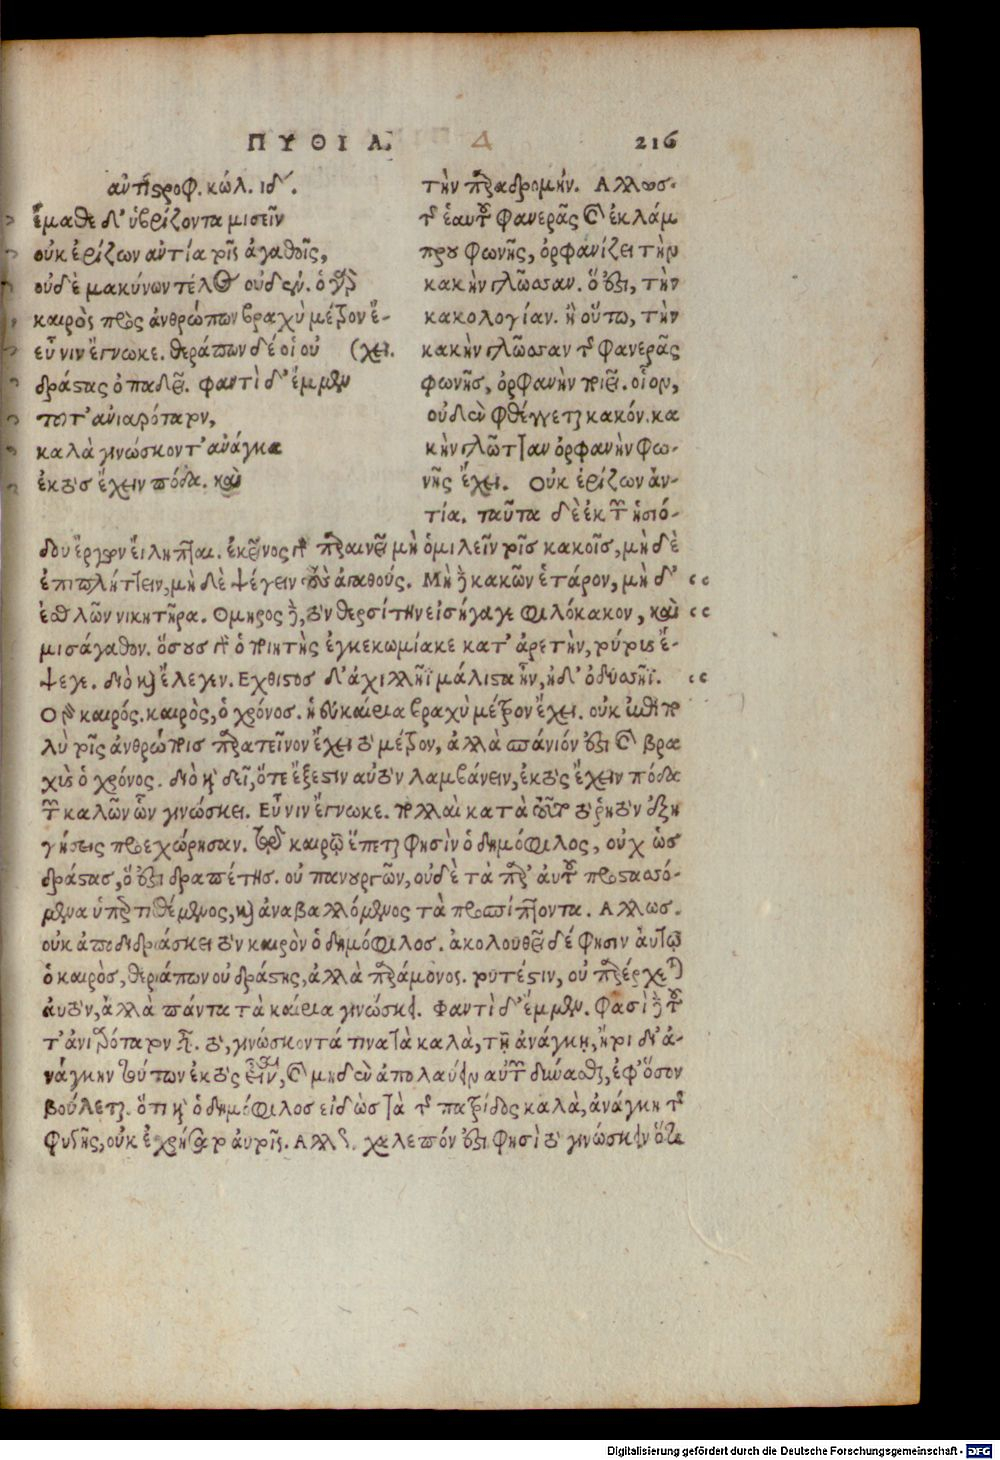 ΠΥΘΙΑ. Δ 216
ἀντιστροφ. κώλ. ιδʹ.
ἔμαθε δ' ὑβρίζοντα μισεῖν
οὐκ ἐρίζων ἀντία τοῖς ἀγαθοῖς,
οὐδὲ μακύνων τέλος οὐδέν. ὁ γὰρ
καιρὸς πρὸς ἀνθρώπων βραχὺ μέτρον ἔ-
εὖ νιν ἔγνωκε. θεράπων δέ οἱ οὐ (χει.
δράστας ὀπαδεῖ. φαντὶ δ' ἔμμεν
τοῦτ' ἀνιαρότατον,
καλὰ γινώσκοντ' ἀνάγκᾳ
ἐκτὸς ἔχειν πόδα. καὶ
τὴν παραδρομήν. Ἄλλως.
τῆς ἑαυτοῦ φανερᾶς καὶ ἐκλάμ
πρου φωνῆς, ὀρφανίζει τὴν
κακὴν γλῶσσαν. ὅ ἐστι, τὴν
κακολογίαν. ἢ οὕτω, τὴν
κακὴν γλῶσσαν τῆς φανερᾶς
φωνῆς, ὀρφανὴν ποιεῖ. οἷον,
οὐδὲν φθέγγεται κακόν. κα
κὴν γλῶτταν ὀρφανὴν φω-
νῆς ἔχει. Οὐκ ἐρίζων ἀν-
τία. ταῦτα δὲ ἐκ τῶν ἡσιό-
δου ἔργων εἴληπται. ἐκεῖνος γὰρ παραινεῖ μὴ ὁμιλεῖν τοῖς κακοῖς, μηδὲ
ἐπιπλήττειν, μηδὲ ψέγειν τοὺς ἀγαθούς. Μὴ δὲ κακῶν ἑτάρον, μὴ δ'
ἐσθλῶν νικητῆρα. Ὅμηρος δὲ, τὸν θερσίτην εἰσήγαγε φιλόκακον, καὶ
μισάγαθον. ὅσους γὰρ ὁ ποιητὴς ἐγκεκωμίακε κατ' ἀρετὴν, τούτους ἔ-
ψεγε. διὸ καὶ ἔλεγεν. Ἔχθιστος δ' ἀχιλλῆϊ μάλιστα ἦν, ἠδ' ὀδυσῆϊ.
Ὁ γὰρ καιρός. καιρὸς, ὁ χρόνος. ἡ εὐκαιρία βραχὺ μέτρον ἔχει. οὐκ ἐπὶ πο
λὺ τοῖς ἀνθρώποις παρατεῖνον ἔχει τὸ μέτρον, ἀλλὰ σπάνιόν ἐστι καὶ βρα
χὺς ὁ χρόνος. διὸ καὶ δεῖ, ὅτε ἔξεστιν αὐτὸν λαμβάνειν, ἐκτὸς ἔχειν πόδα
τῶν καλῶν ὧν γινώσκει. Εὖ νιν ἔγνωκε. πολλαὶ κατὰ τοῦτο τὸ ῥητὸν ἐξη
γήσεις προεχώρησαν. τῷ καιρῷ ἕπεται φησὶν ὁ δημόφιλος, οὐχ ὡς
δράστας, ὅ ἐστι δραπέτης. οὐ πανουργῶν, οὐδὲ τὰ παρ' αὐτοῦ προστασσό-
μενα ὑπερτιθέμενος, καὶ ἀναβαλλόμενος τὰ προσπίπτοντα. Ἄλλως.
οὐκ ἀποδιδράσκει τὸν καιρὸν ὁ δημόφιλος. ἀκολουθεῖ δέ φησιν αὐτῷ
ὁ καιρὸς, θεράπων οὐ δράστης, ἀλλὰ παράμονος. τουτέστιν, οὐ παρέρχεται
αὐτὸν, ἀλλὰ πάντα τὰ καίρια γινώσκει. Φαντὶ δ' ἔμμεν. φασὶ δὲ τοῦ
τ' ἀνιαρότατον εἶναι. τὸ, γινώσκοντά τινα τὰ καλὰ, τῇ ἀνάγκῃ, ἤτοι δι' ἀ-
νάγκην τούτων ἐκτὸς εἶναι, καὶ μηδὲν ἀπολαύειν αὐτῶν δύνασθαι, ἐφ' ὅσον
βούλεται. ὅτι καὶ ὁ δημόφιλος εἰδὼς τὰ τῆς πατρίδος καλὰ, ἀνάγκη τῆς
φυγῆς, οὐκ ἐχρήσατο αὐτοῖς. Ἄλλως. χαλεπόν ἐστι φησὶ τὸ γινώσκειν ὅτε
Digitalisierung gefördert durch die Deutsche Forschungsgemeinschaft - DFG